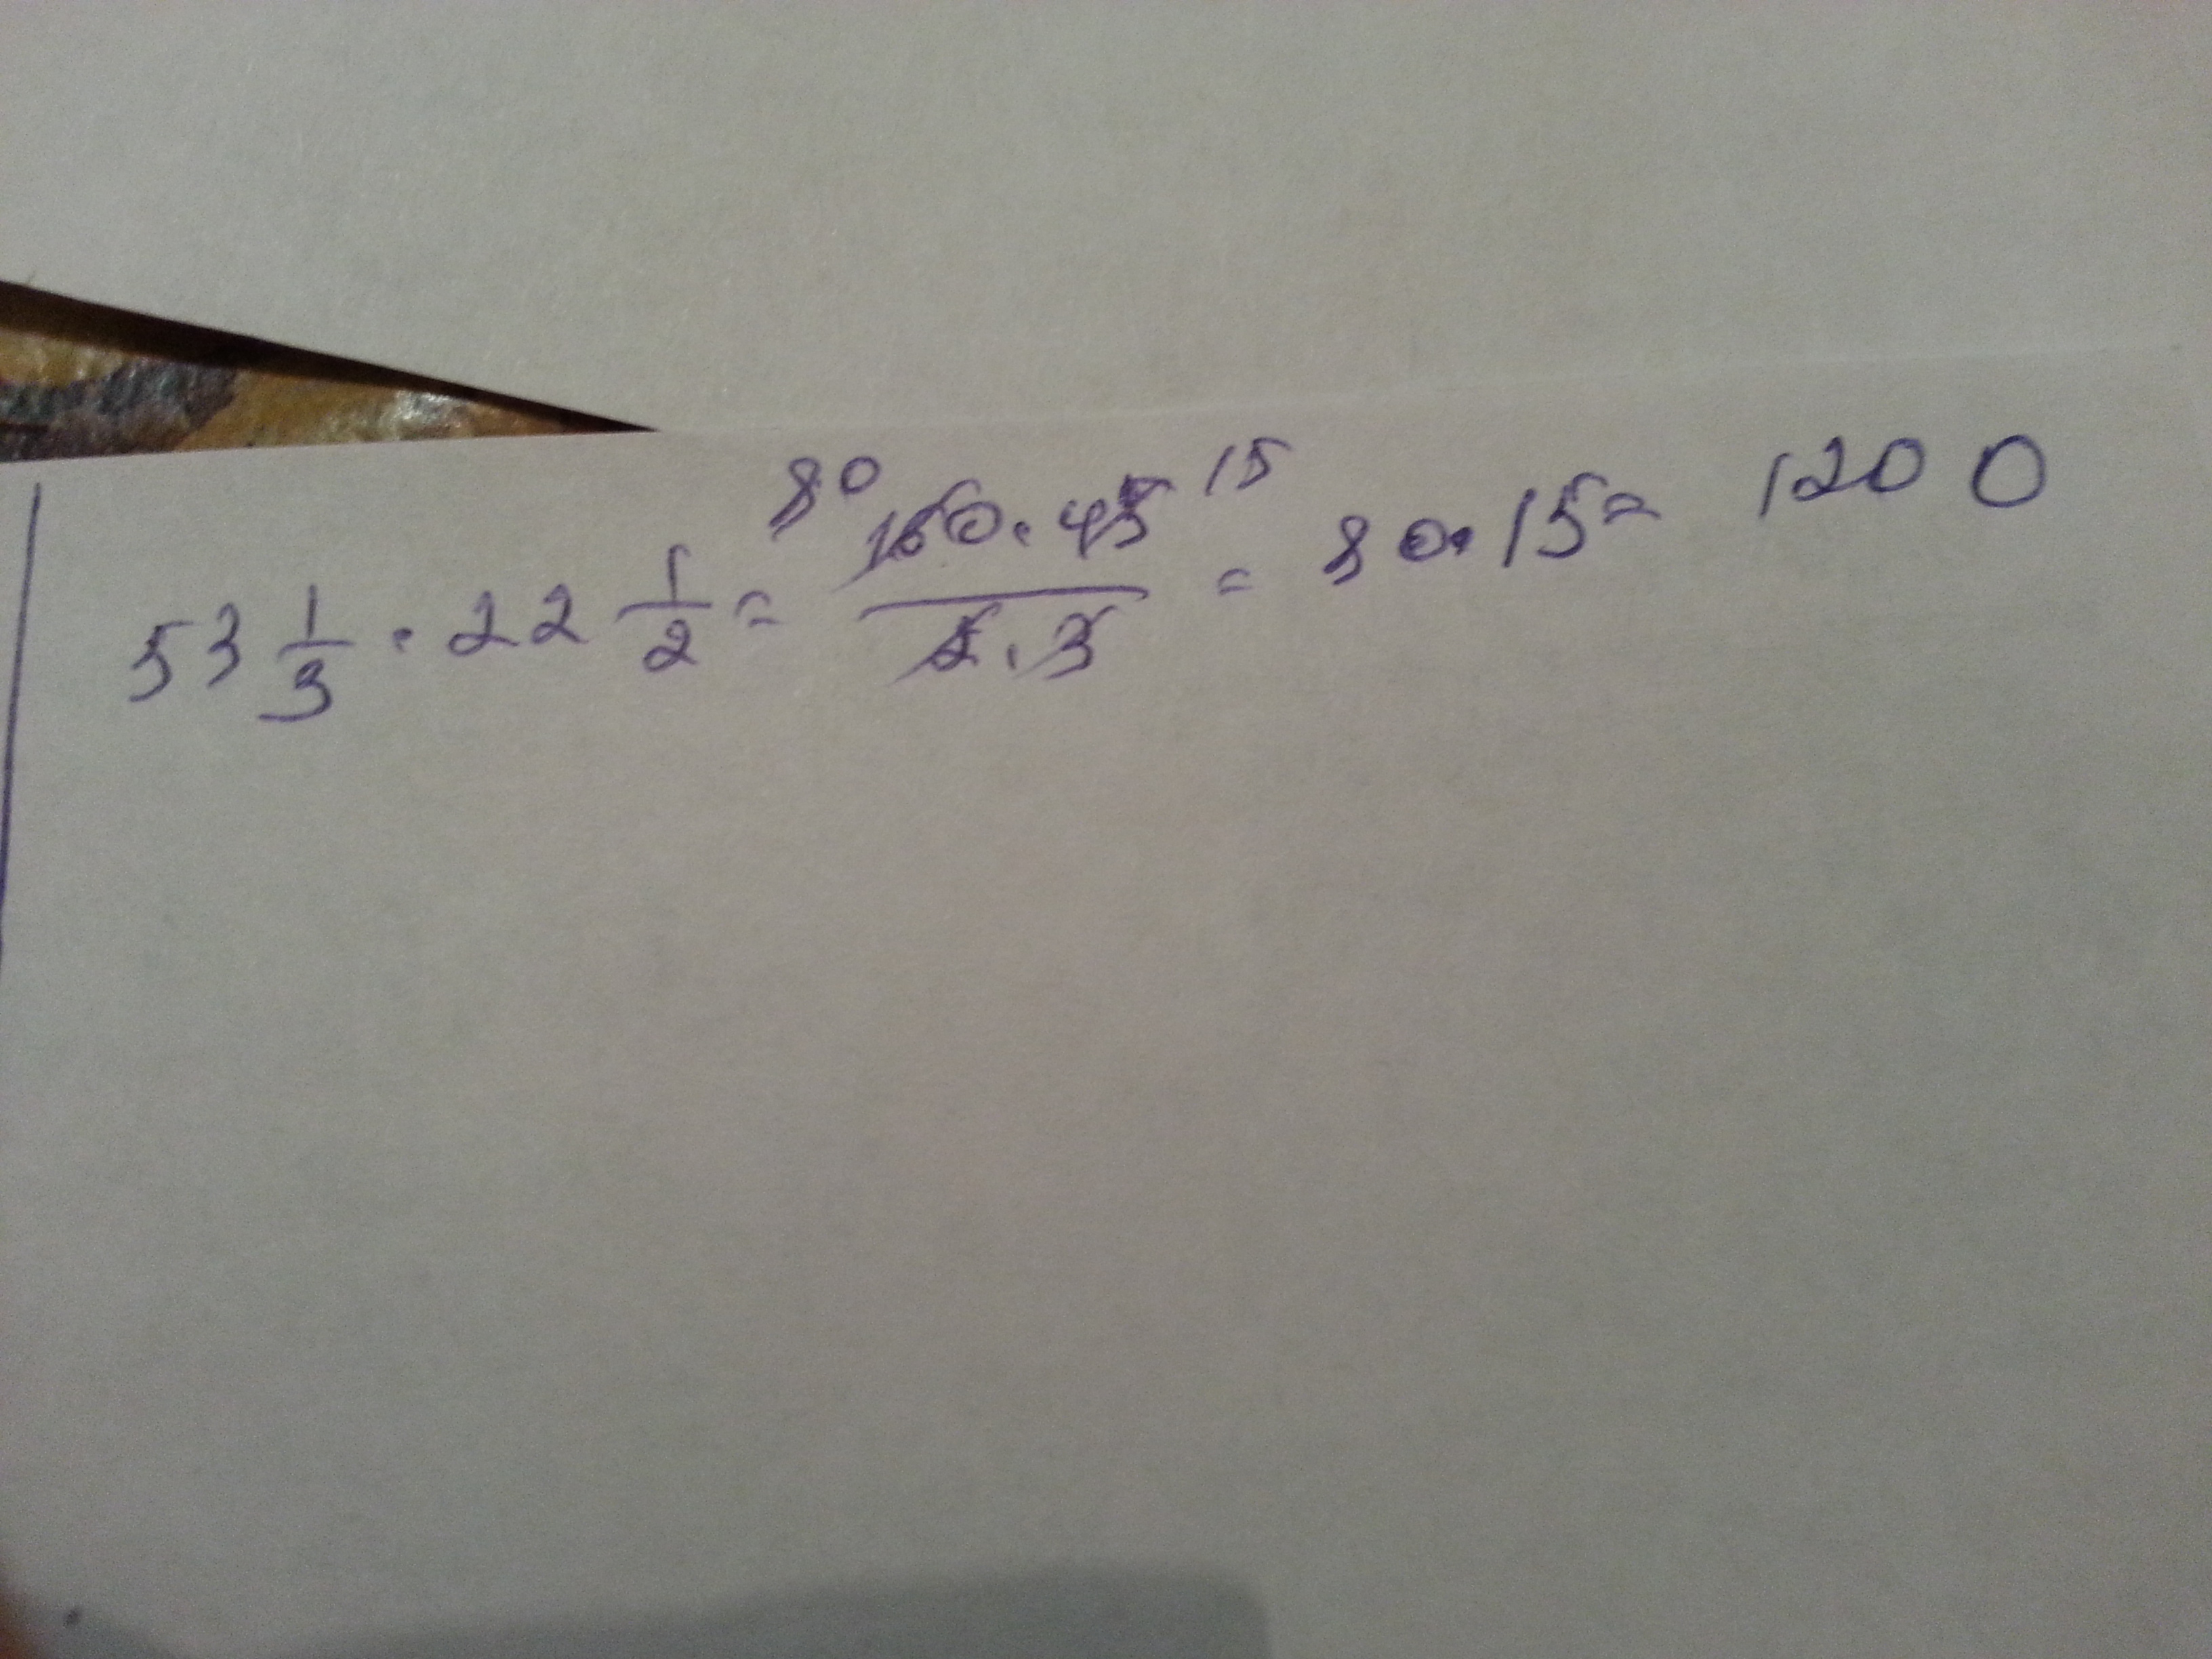 53 1/3 · 22 1/2 = 80 160 · 45 15 / 2 · 3 = 80 · 15 = 1200